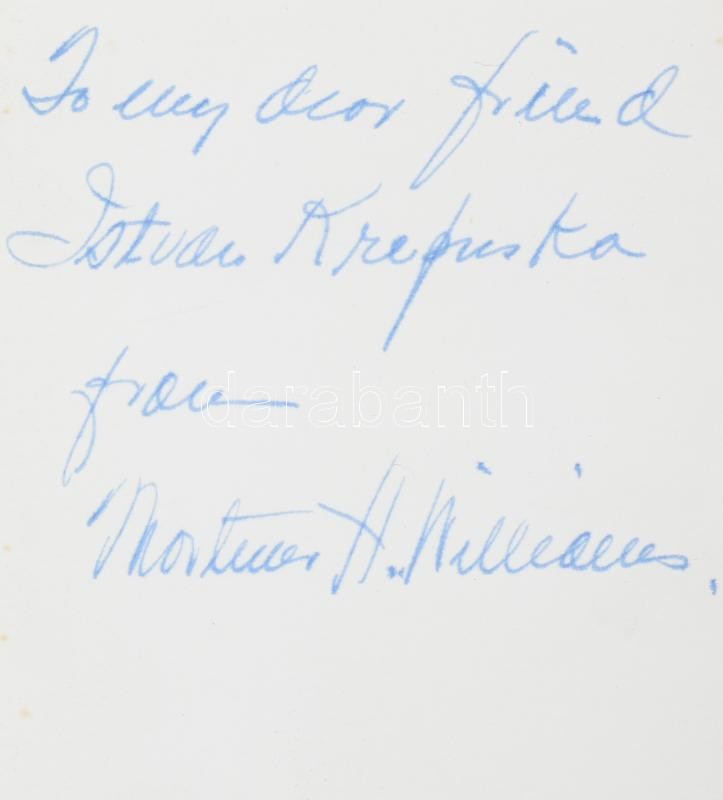 To my dear friend
István Krepuska
from—
darabanth
Mortimer H. Williams.